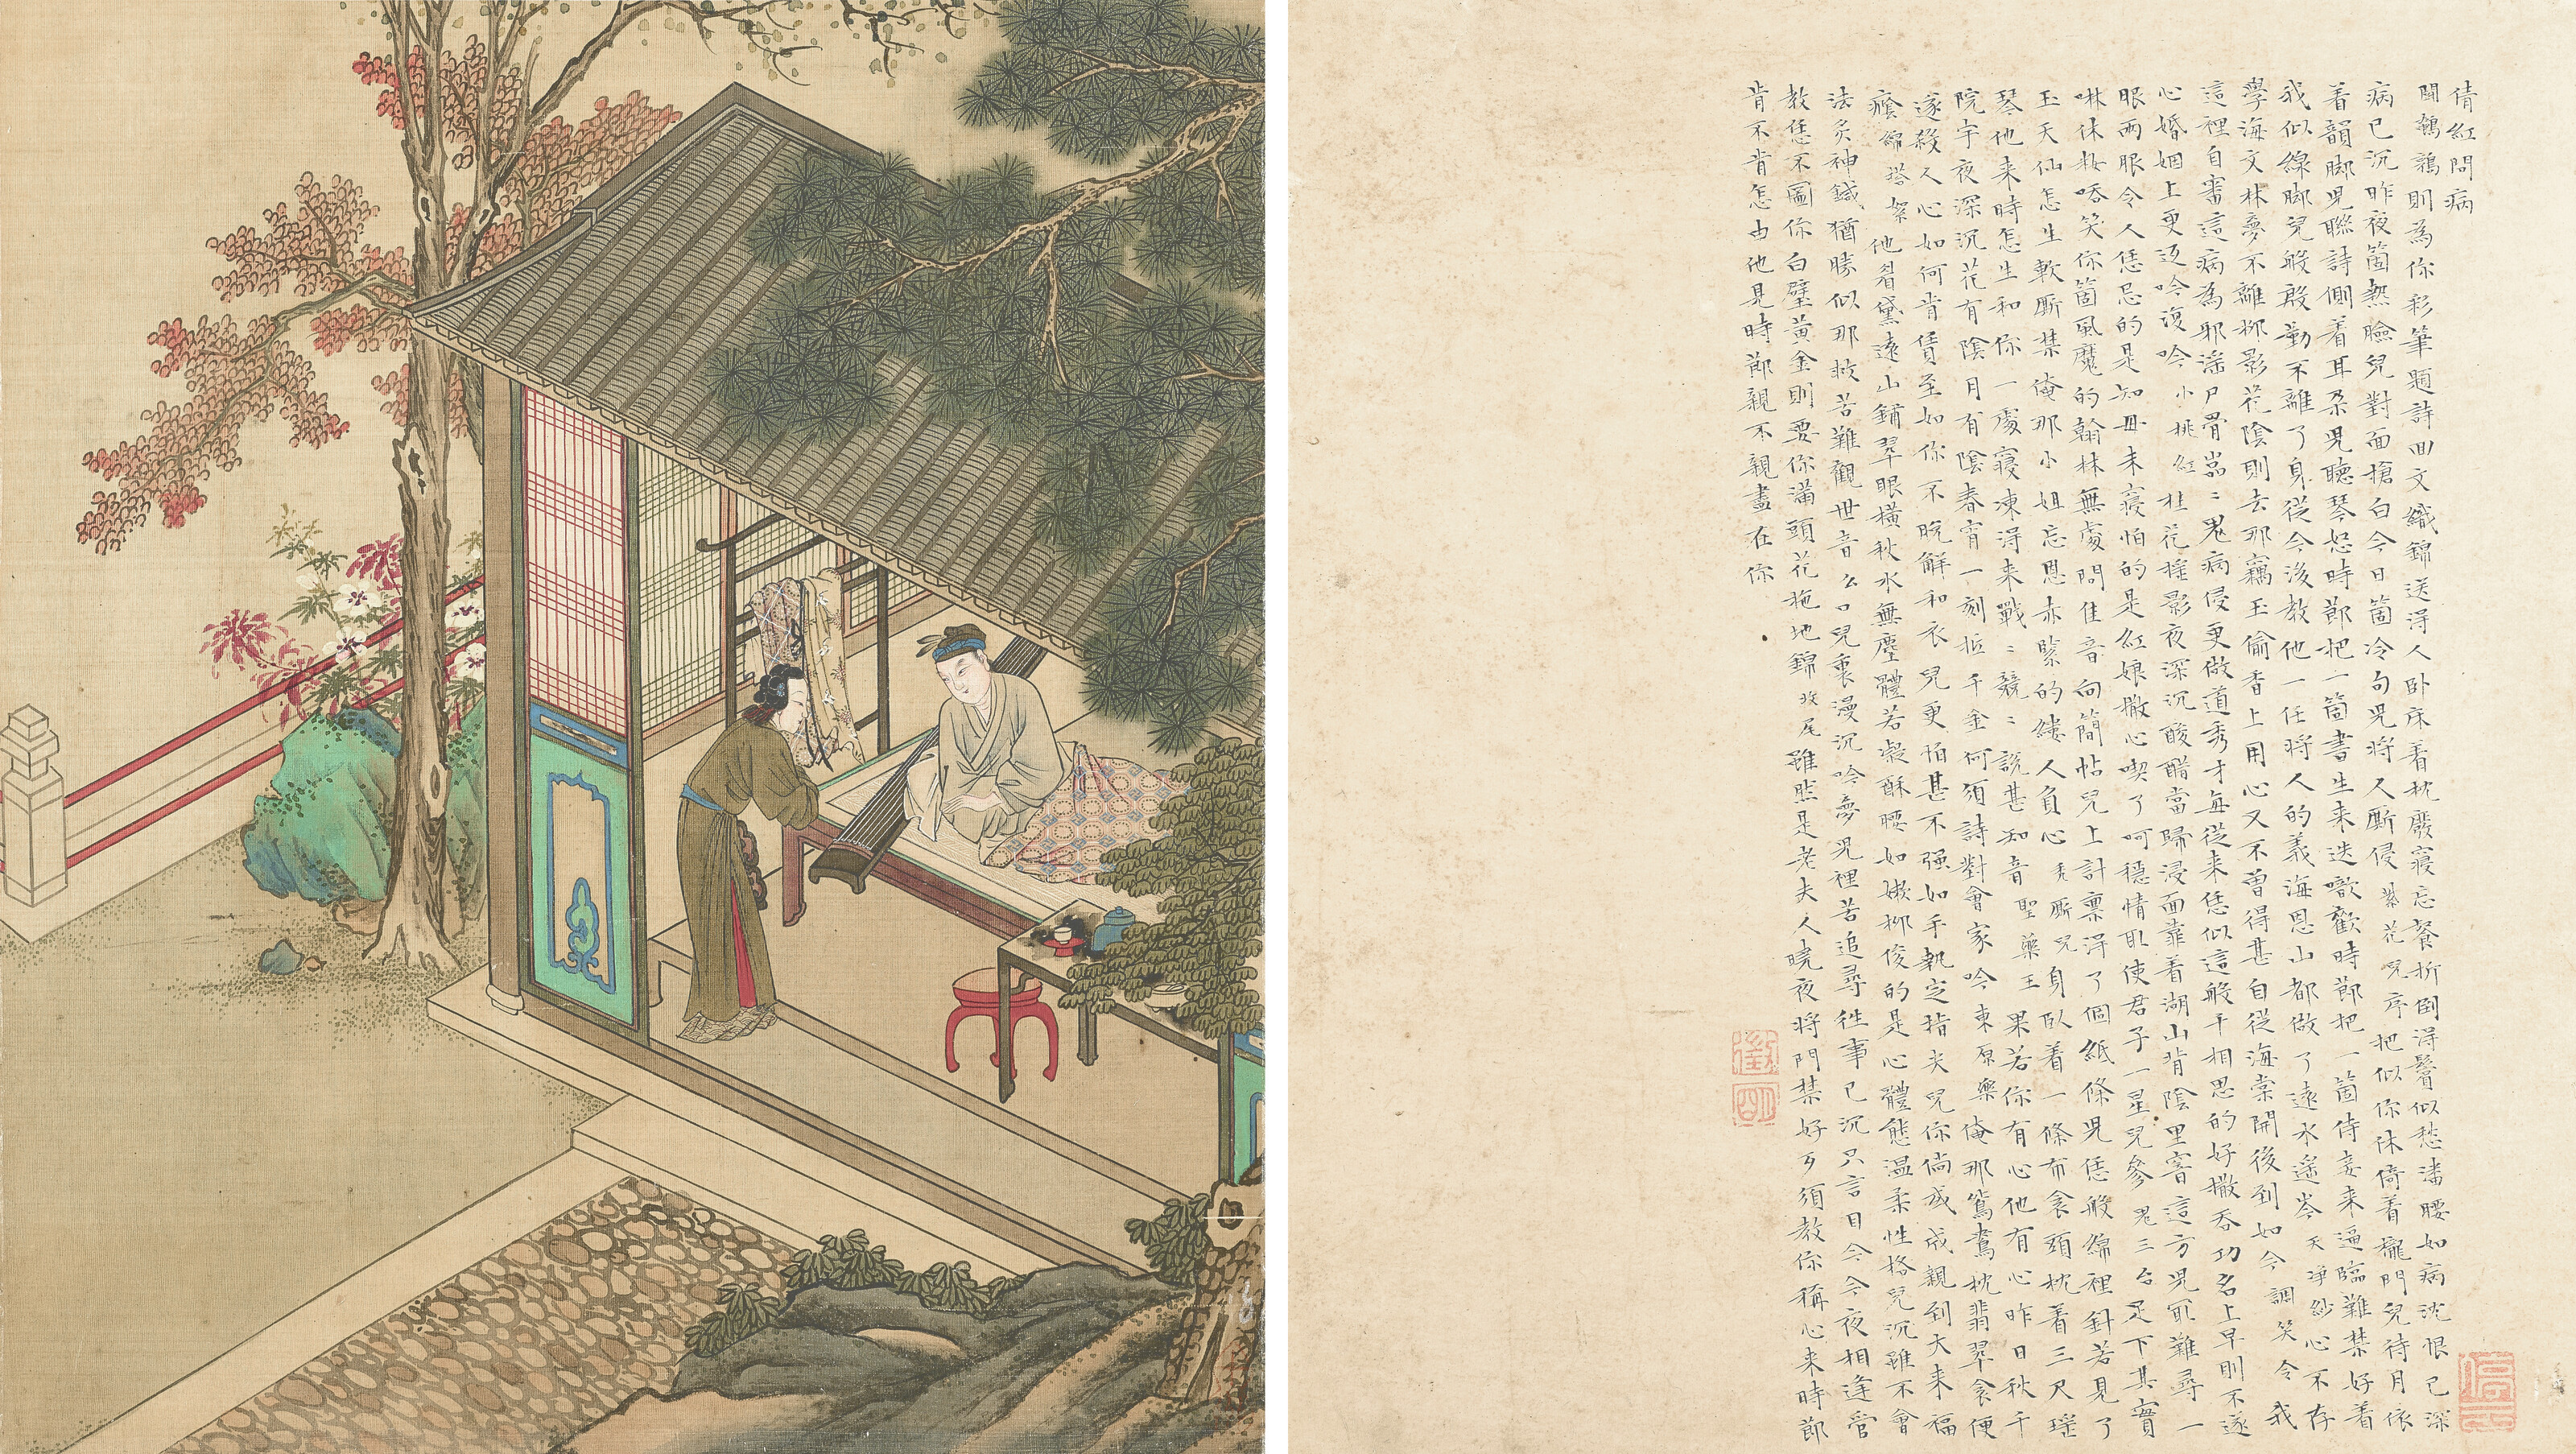 倩紅問病
鬪鵪鶉則為你彩筆題詩回文織錦送淂人卧床着枕廢寢忘餐折倒淂鬢似愁潘腰如病沈恨已深
病已沉昨夜箇熱臉兒對面搶白今日箇冷句兒將人厮侵紫花兒序把似你休倚着櫳門兒待月依
着韻脚兒聯詩側着耳朵兒聽琴怒時節把一箇書生来迭噷歡時節把一箇侍妾来逼臨難禁好着
我似線脚兒般殷勤不離了身從今後教他一任將人的義海恩山都做了遠水遙岑天淨紗心不存
學海文林夢不離栁影花陰則去那竊玉偷香上用心又不曾得甚自從海棠開後到如今調笑令我
這裡自審這病為邪滛尸骨嵓〻鬼病侵更做道秀才每從来恁似這般干相思的好撒吞功名上早則不遂
心婚姻上更返吟復吟小桃紅桂花摇影夜深沉酸醋當歸浸面靠着湖山背陰里窨這方兒冣難尋一
服兩服令人恁忌的是知母未寢怕的是紅娘撒心喫了呵穩情取使君子一星兒參鬼三台足下其實
啉休粧唔笑你箇風魔的翰林無處問佳音向簡帖兒上計稟淂了個紙條兒恁般綿裡針若見了
玉天仙怎生軟厮禁俺那小姐忘恩赤緊的僂人負心秃厮兒身臥着一條布衾頭枕着三尺瑶
琴他来時怎生和你一處寢凍淂来戰〻兢〻說甚知音聖藥王果若你有心他有心昨日秋千
院宇夜深沉花有陰月有陰春宵一刻抵千金何須詩對會家吟東原樂俺那鴛鴦枕翡翠衾便
遂殺人心如何肯賃至如你不脫解和衣兒更怕甚不强如手執定指尖兒你倘或成親到大来福
癊綿搭絮他眉黛遠山鋪翠眼橫秋水無塵體若凝酥腰如嫩栁俊的是心體態温柔性格兒沉雖不會
法灸神鍼猶勝似那救苦難觀世音么口兒裏漫沉吟夢兒裡苦追尋徃事已沉只言目今今夜相逢管
教恁不圖你白璧黃金則要你滿頭花拖地錦收尾雖然是老夫人曉夜將門禁好歹須教你稱心来時節
肯不肯怎由他見時節親不親盡在你
徵
明
停
雲